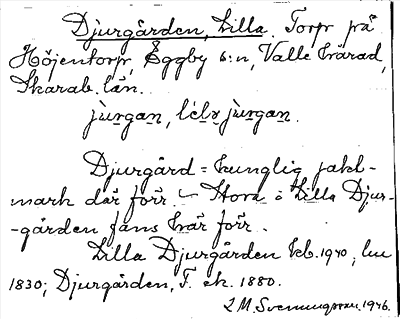 Djurgården, Lilla. Torp på
Höjentorp, Eggby s:n, Valle härad,
Skarab. län.
jurgan, lɛlɤ jurgan.
Djurgård = kunglig jakt-
mark där förr. – Stora o Lilla Djur-
-gården fans här förr.
Lilla Djurgården 1940;
1830; Djurgården, T. ek. 1880.
L M. Svenungsson. 1946.